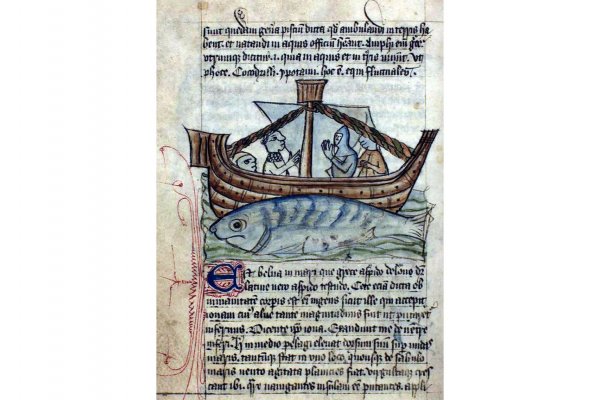 sunt quedam gen̄a pisciū dicta qd ambulandi in terris ha
bent. et natandi in aquis officiū hēant. Amphi em̄ gre
dicitur .i. qua in aquis et in t̄ris uiuūt. ut
phoce. Cocodrilli. ypotami. hoc ē. equi fluctuales.
Est belua in mari que grece aspido delone dr̄
latine uero aspido testudo. Cete etiā dicta ob
immanitatem corpis est em̄ ingens sicut ille qui excepit
ionam cuī alue tante magnitudinis fuit ut putaret
infernus. Dicente ip̄o iona. Exaudiuit me de uentre
inferi. in medio pelagi eleuat dorsum suū sup undas
maris. stat in uno loco quousque de sabulo
maris uento agitata planicies fiat. cres
cant ibi. nauigantes insulam ee putantes. appli